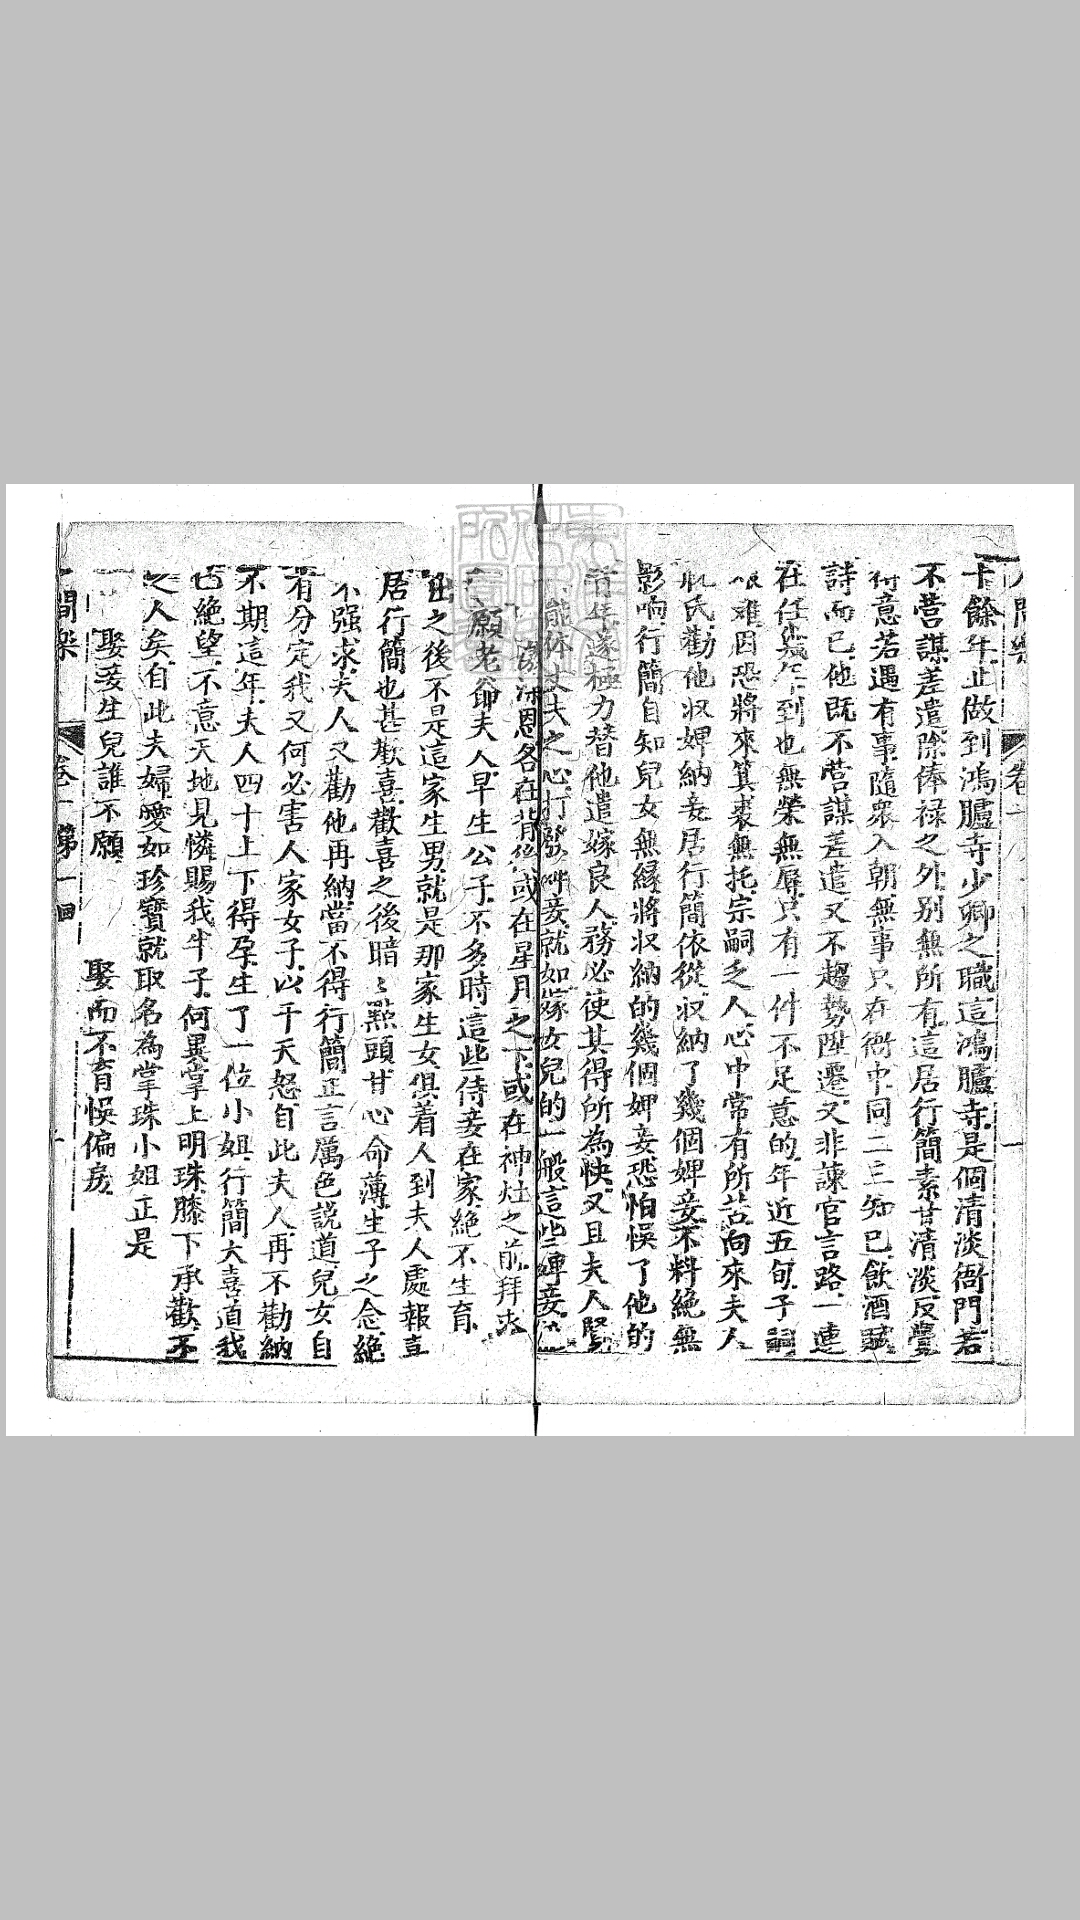 十餘年止做到鴻臚寺少卿之職這鴻臚寺是個清淡衙門若
不營謀差遣除俸禄之外别無所有這居行簡素甘清淡反覺
得意若遇有事隨衆入朝無事只在衙中同二三知已飲酒賦
詩而已他既不營謀差遣又不趨勢陞遷又非諫官言路一連
在任幾年到也無榮無辱只有一件不足意的年近五旬子嗣
艱難因恐將來箕裘無托宗嗣乏人心中常有所苦向來夫人
氏勸他収婢納妾居行簡依從収納了幾個婢妾不料絶無
影响行簡自知兒女無縁將収納的幾個婢妾恐怕悞了他的
青年遂極力替他遣嫁良人務必使其得所為快又且夫人賢
能体丈夫之心打發婢妾就如嫁女兒的一般這些婢妾
恩各在背後或在星月之下或在神灶之前拜求
願老爺夫人早生公子不多時這些侍妾在家絶不生育
出之後不是這家生男就是那家生女俱着人到夫人處報喜
居行簡也甚歡喜歡喜之後暗〻點頭甘心命薄生子之念絶
不强求夫人又勸他再納當不得行簡正言厲色説道兒女自
有分定我又何必害人家女子以干天怒自此夫人再不勸納
不期這年夫人四十上下得孕生了一位小姐行簡大喜道我
已絶望不意天地見憐賜我半子何異掌上明珠膝下承歡不
之人矣自此夫婦愛如珍寶就取名為掌珠小姐正是
娶妾生兒誰不願 娶而不育悞偏房
間樂 卷一 第一回